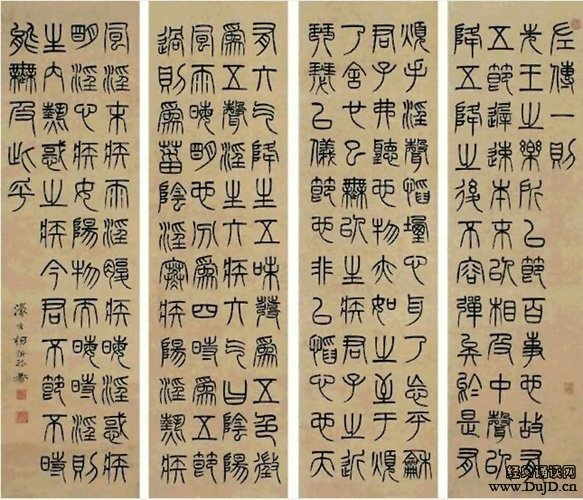 左傳一則
先王之樂所以節百事也故有
五節遲速本末以相及中聲以
降五降之後不容彈矣於是有
煩手淫聲慆堙心耳乃忘平龢
君子弗聽也物亦如之至于煩
乃舍也已無以生疾君子之近
琴瑟以儀節也非以慆心也天
有六气降生五味發爲五色徵
爲五聲淫生六疾六气曰陰陽
風雨晦明也分爲四時爲五節
過則爲菑陰淫寒疾陽淫熱疾
風淫末疾雨淫腹疾晦淫惑疾
明淫心疾女陽物而晦時淫則
生內熱惑之疾今君不節不時
能無及此乎
濠叟楊沂孫篆
经典诵读网
www.DujD.cn